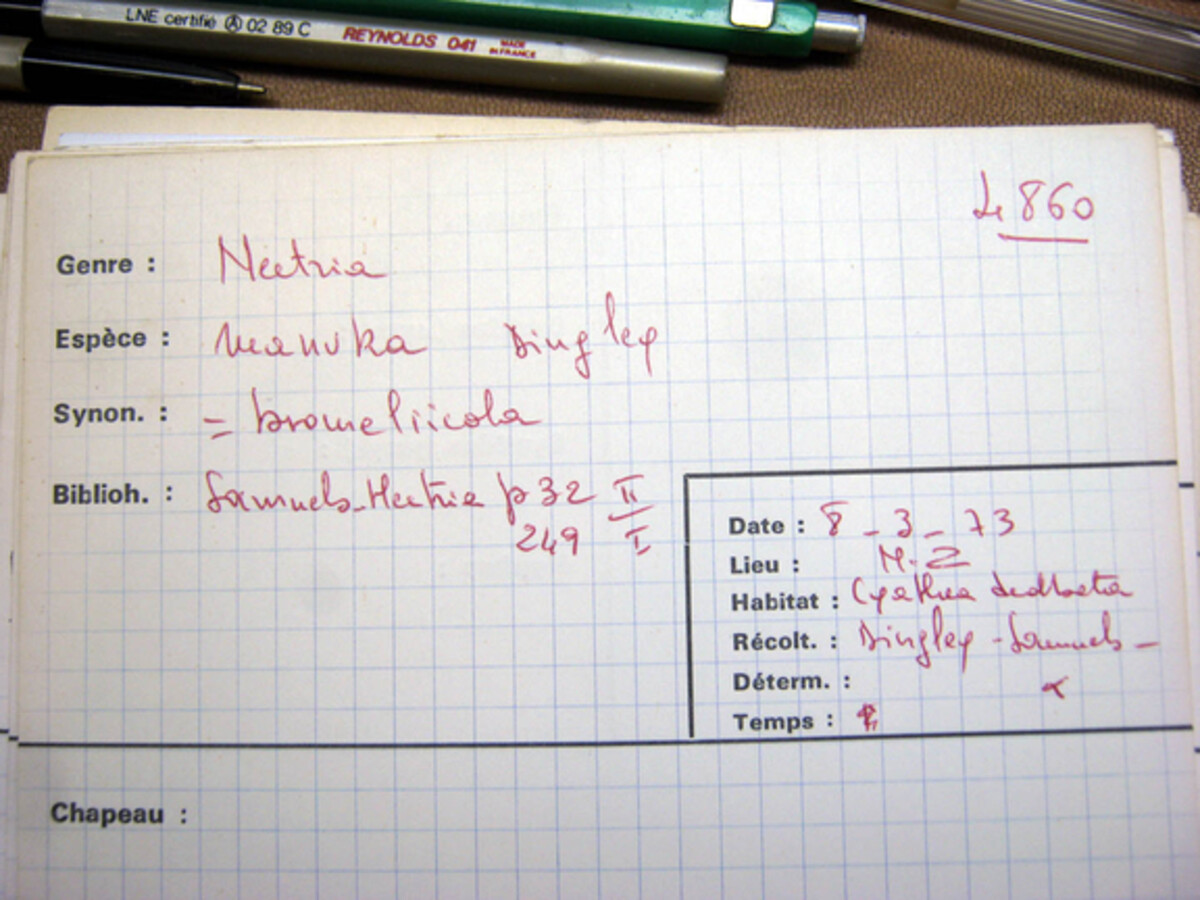 LNE certifié A 02 89 C REYNOLDS 041 MADE IN FRANCE
L 860
Genre : Nectria
Espèce : manuka Dingley
Synon. : = bromeliicola
Biblioh. : Samuels-Nectria p 32 II
249 I
Date : 8 - 3 - 73
Lieu : N.Z
Habitat : Cyathea dealbata
Récolt. : Dingley - Samuels -
Déterm. :
Temps :
Chapeau :